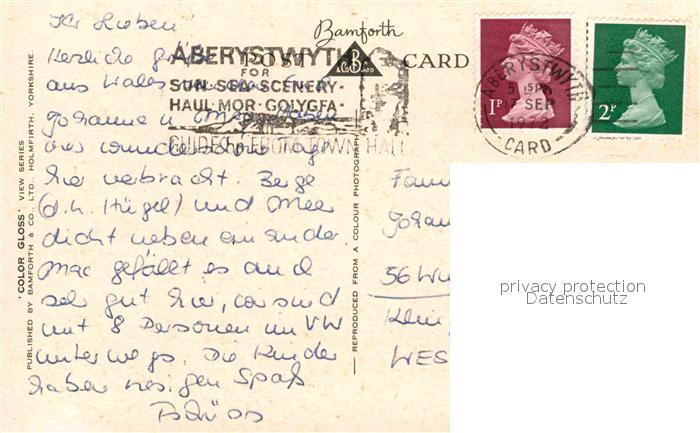 Ihr Lieben!
Bamforth
POST CARD
B
& Co LTD
ABERYSTWYTH
FOR
SUN·SEA·SCENERY·
HAUL·MOR·GOLYGFA·
GUIDE FREE TOWN HALL
ABERYSTWYTH
5 15PM
17 SEP
1972
CARD
1P
2P
Herzliche Grüße
aus Wales von
Johanna u. Haben
wunderschöne Tage
hier verbracht. Berge
(d.h. Hügel) und Meer
dicht neben einander.
Mac gefällt es auch
sehr gut hier, wir sind
mit 8 Personen im VW
unterwegs. Die Kinder
haben riesigen Spaß
Tschüss
Fam
Johan
56 Wu
Klein
WES
'COLOR GLOSS' VIEW SERIES
PUBLISHED BY BAMFORTH & CO., LTD., HOLMFIRTH, YORKSHIRE.
REPRODUCED FROM A COLOUR PHOTOGRAPH
privacy protection
Datenschutz